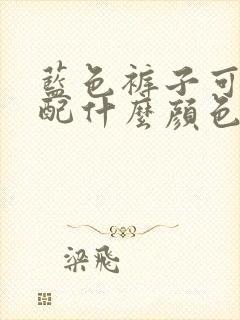 藍色裤子可
配什麼顔色
梁飛